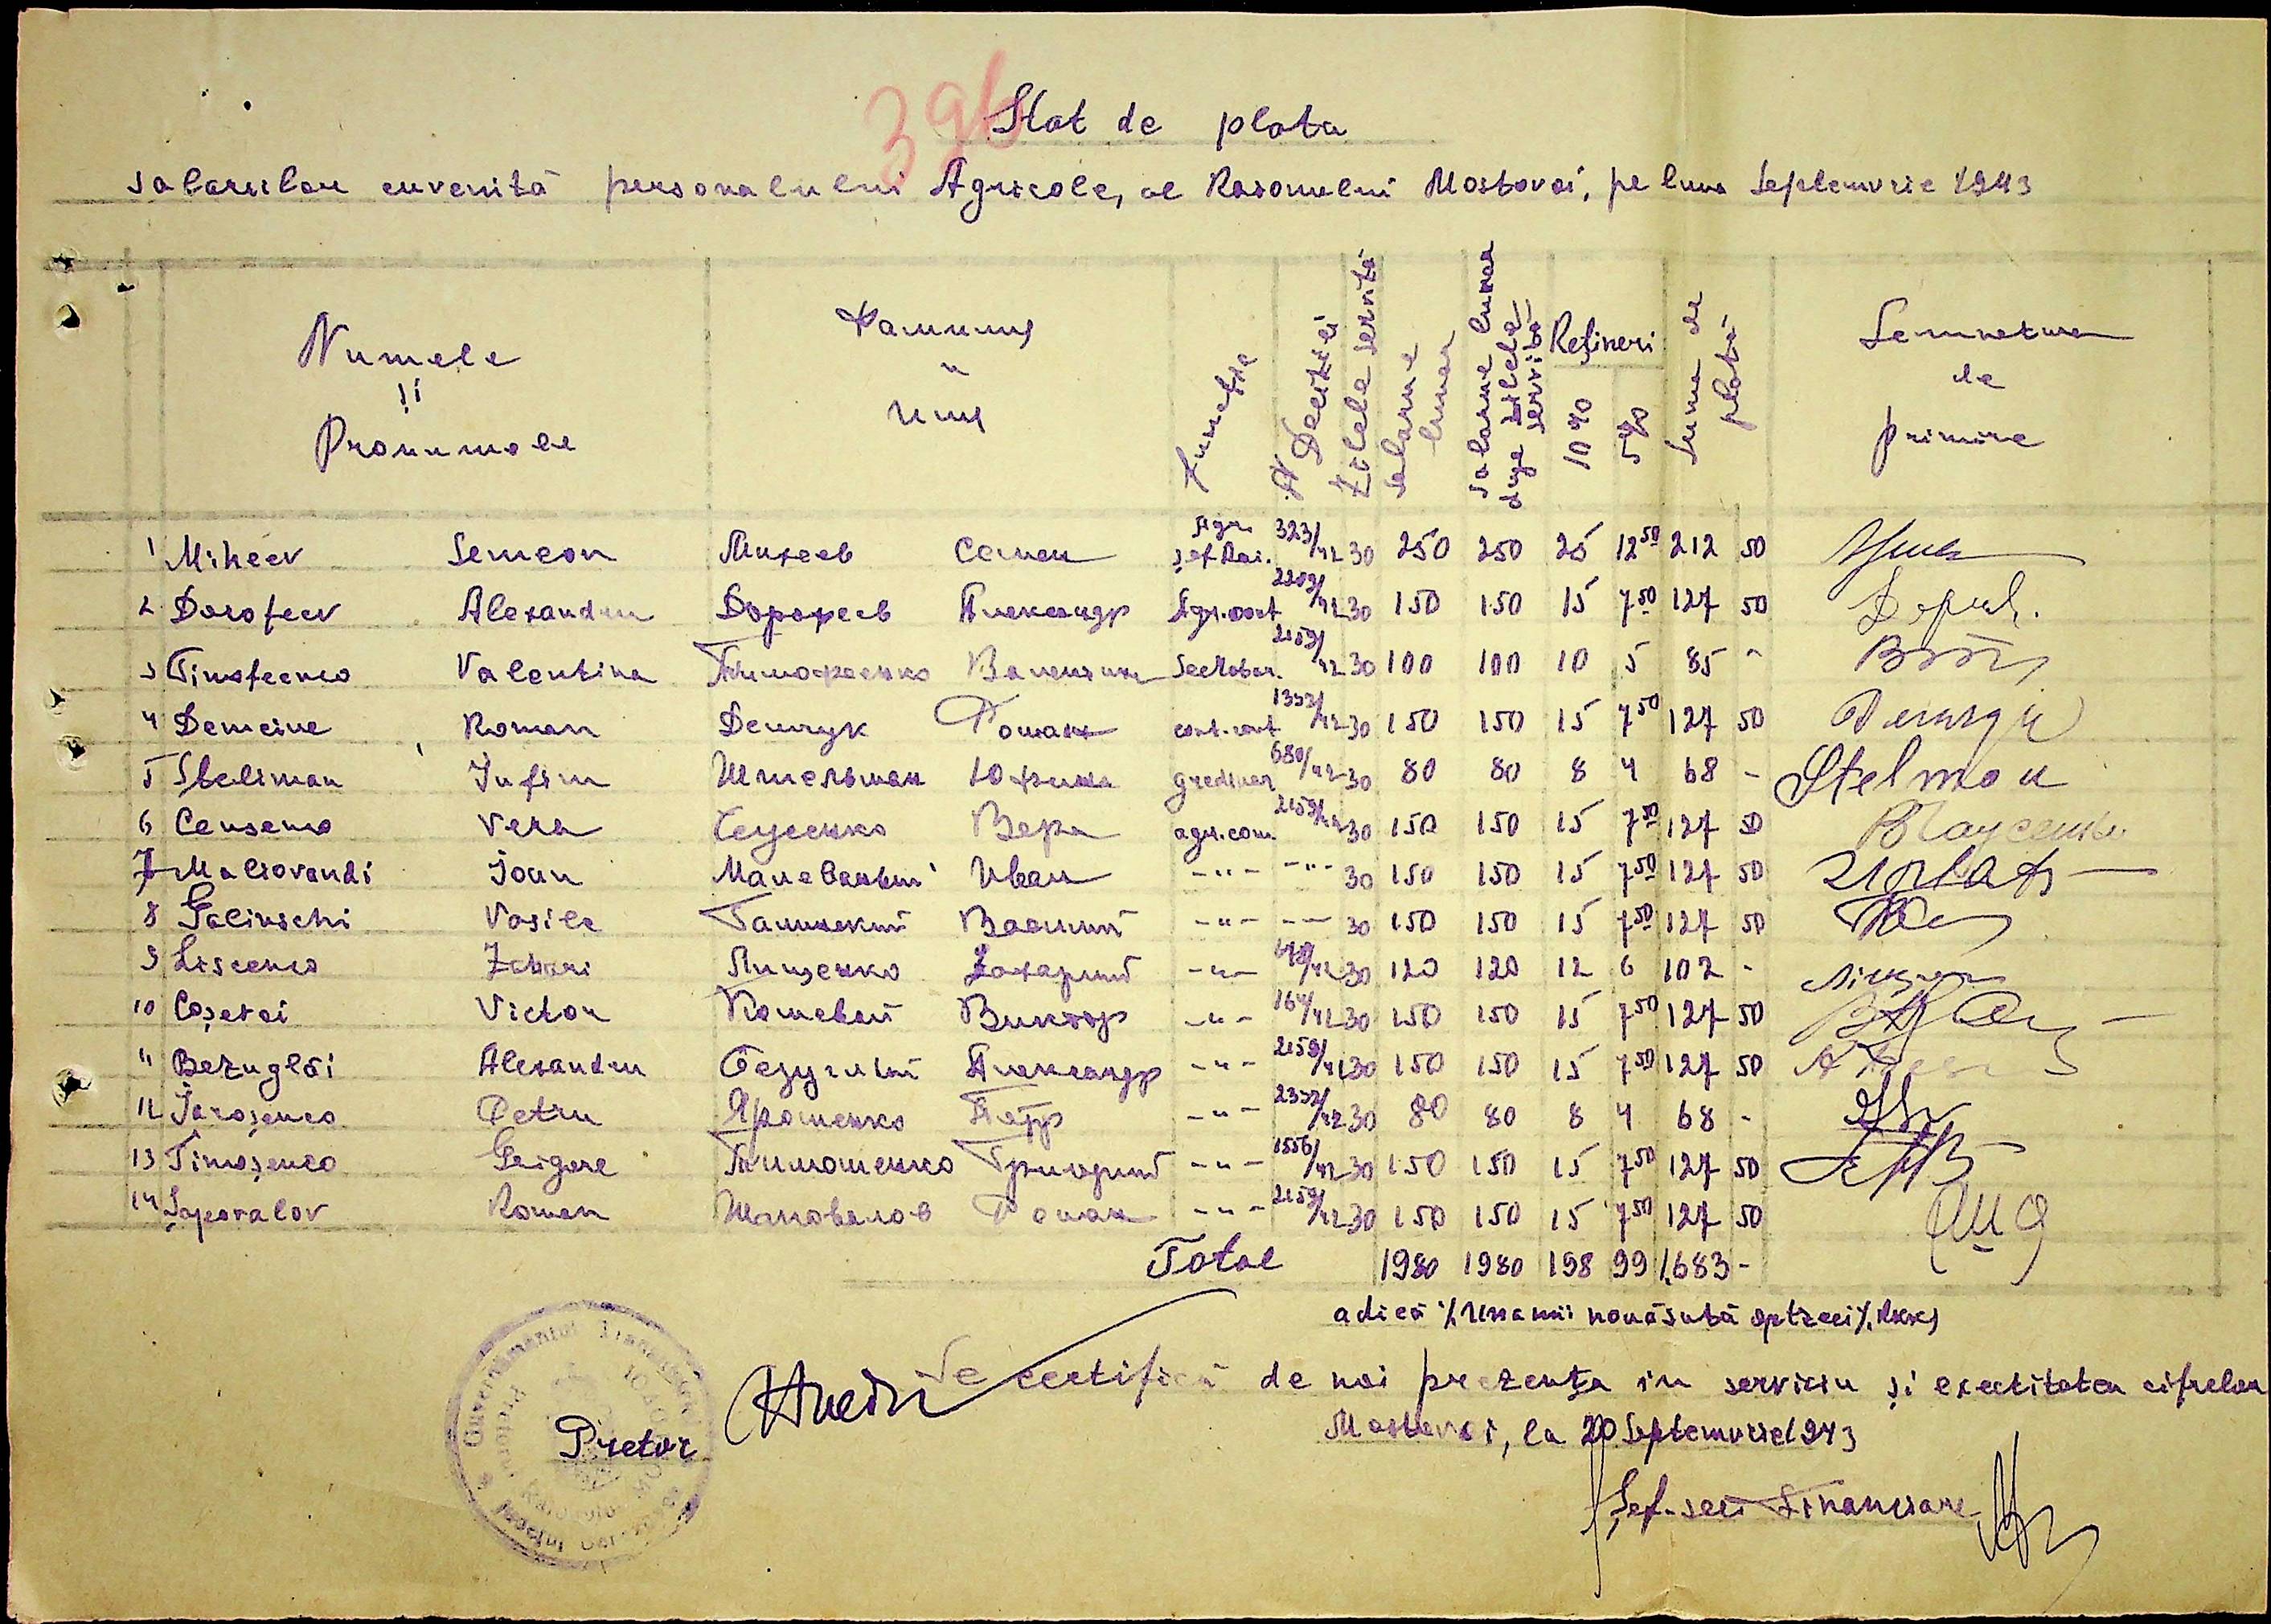 396
Stat de plata
salariilor cuvenită personalului Agricole, al Raionului Mostovoi, pe luna Septemvrie 1943
Numele și Pronumele | Фамилия и имя | Funcția | N Deciziei | Zilele servite | Salariul lunar | Salariul lunar dupe zilele servite | Rețineri 10% | 5% | Suma de plată | Semnatura de primire
1 Miheev Semeon Михеев Семен Agr. șef Rai. 323/42 30 250 250 25 12 50 212 50
2 Dorofeev Alexandru Дорофеев Александр Agr. cont 2209/42 30 150 150 15 7 50 127 50
3 Timofeenco Valentina Тимофеенко Валентин 2159/42 30 100 100 10 5 85 -
4 Demciuc Roman Демчук Роман cont. cont 1352/42 30 150 150 15 7 50 127 50
5 Steliman Iufim Штельман Юфим gredinar 680/42 30 80 80 8 4 68 - Stelmau
6 Ceusenco Vera Чеусенко Вера agr. com. 2159/42 30 150 150 15 7 50 127 50
7 Maliovandi Ioan Малеваный Иван -"- -"- 30 150 150 15 7 50 127 50
8 Galinschi Vasile Галинский Василий -"- -"- 30 150 150 15 7 50 127 50
9 Liscenco Zahari Лищенко Захарий -"- 30 120 120 12 6 102 -
10 Coșevoi Victor Кошевой Виктор -"- 164/42 30 150 150 15 7 50 127 50
11 Bezuglâi Alexandru Безуглый Александр -"- 2159/42 30 150 150 15 7 50 127 50
12 Iaroșenco Petru Ярошенко Петр -"- 2352/42 30 80 80 8 4 68 -
13 Timoșenco Grigore Тимошенко Григорий -"- 1556/42 30 150 150 15 7 50 127 50
14 Șapovalov Roman Шаповалов Роман -"- 2159/42 30 150 150 15 7 50 127 50
Total 1980 1980 198 99 1.683 -
adică %Una mii nouăsută optzeci%
Se certifică de noi prezența in serviciu și exectitatea cifrelor
Mostovoi, la 20 Septemvrie 1943
Pretor
Șef-secț Financiare
Guvernământul Transnistriei
Pretura Raionului
Județul